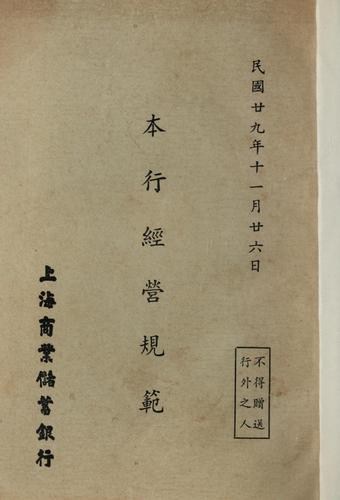 民國廿九年十一月廿六日
不得贈送
行外之人
本行經營規範
上海商業儲蓄銀行